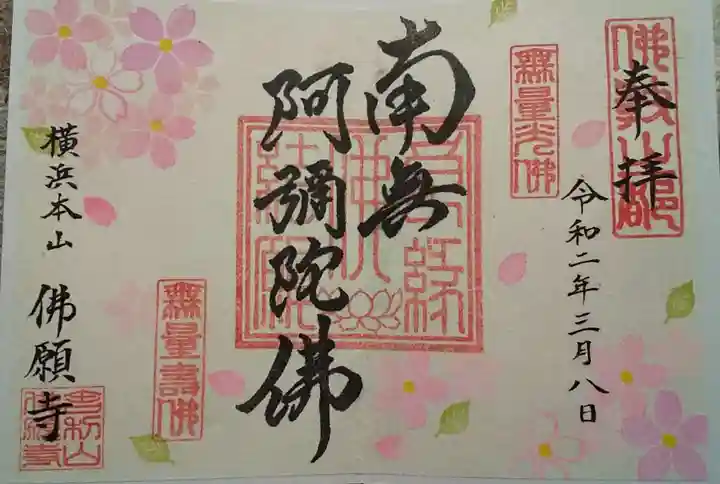 奉拝
令和二年三月八日
無量光佛
南無
阿彌陀佛
無量壽佛
横浜本山 佛願寺